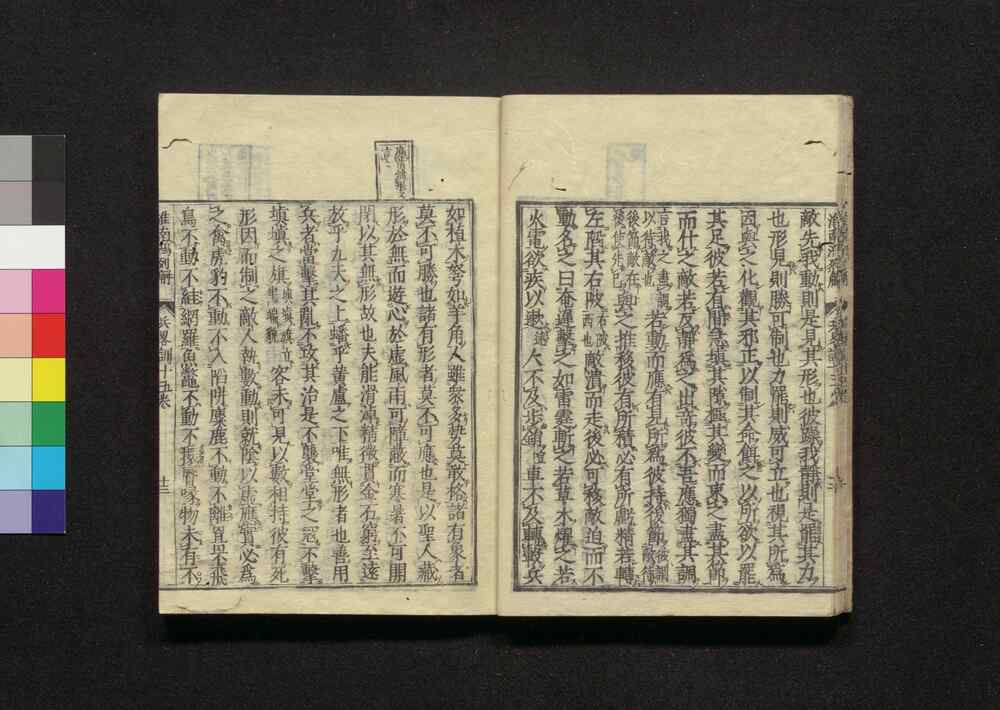 敵先我動則是見其形也彼躁我靜則是罷其力
也形見則勝可制也力罷則威可立也視其所為
因與之化觀其邪正以制其命餌之以所欲以罷
其足彼若有間急填其隙極其變而束之盡其節
而仆之敵若反靜為之出奇彼不吾應獨盡其調
若動而應有見所為彼持後節
與之推移彼有所積必有所虧精若轉
左陷其右陂敵潰而走後必可移敵迫而不
動名之曰奄遲擊之如雷霆斬之若草木燿之若
火電欲疾以遬人不及步鋗車不及轉轂兵
如植木弩如羊角人雖衆多勢莫敢格諸有象者
莫不可勝也諸有形者莫不可應也是以聖人藏
形於無而遊心於虛風雨可障蔽而寒暑不可開
閉以其無形故也夫能滑淖精微貫金石窮至遠
放乎九天之上蟠乎黄盧之下唯無形者也善用
兵者當擊其亂不攻其治是不襲堂堂之寇不擊
填填之旗容未可見以數相持彼有死
形因而制之敵人執數動則就陰以虛應實必為
之禽虎豹不動不入陷阱麋鹿不動不離罝罘飛
鳥不動不絓網羅魚鼈不動不擐脣喙物未有不
兵畧訓十五卷
十三